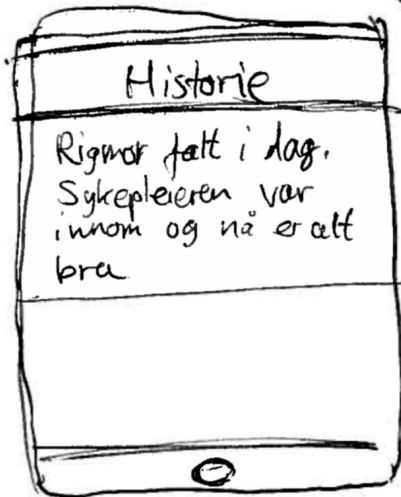 Historie
Rigmor falt i dag.
Sykepleieren var
innom og nå er alt
bra